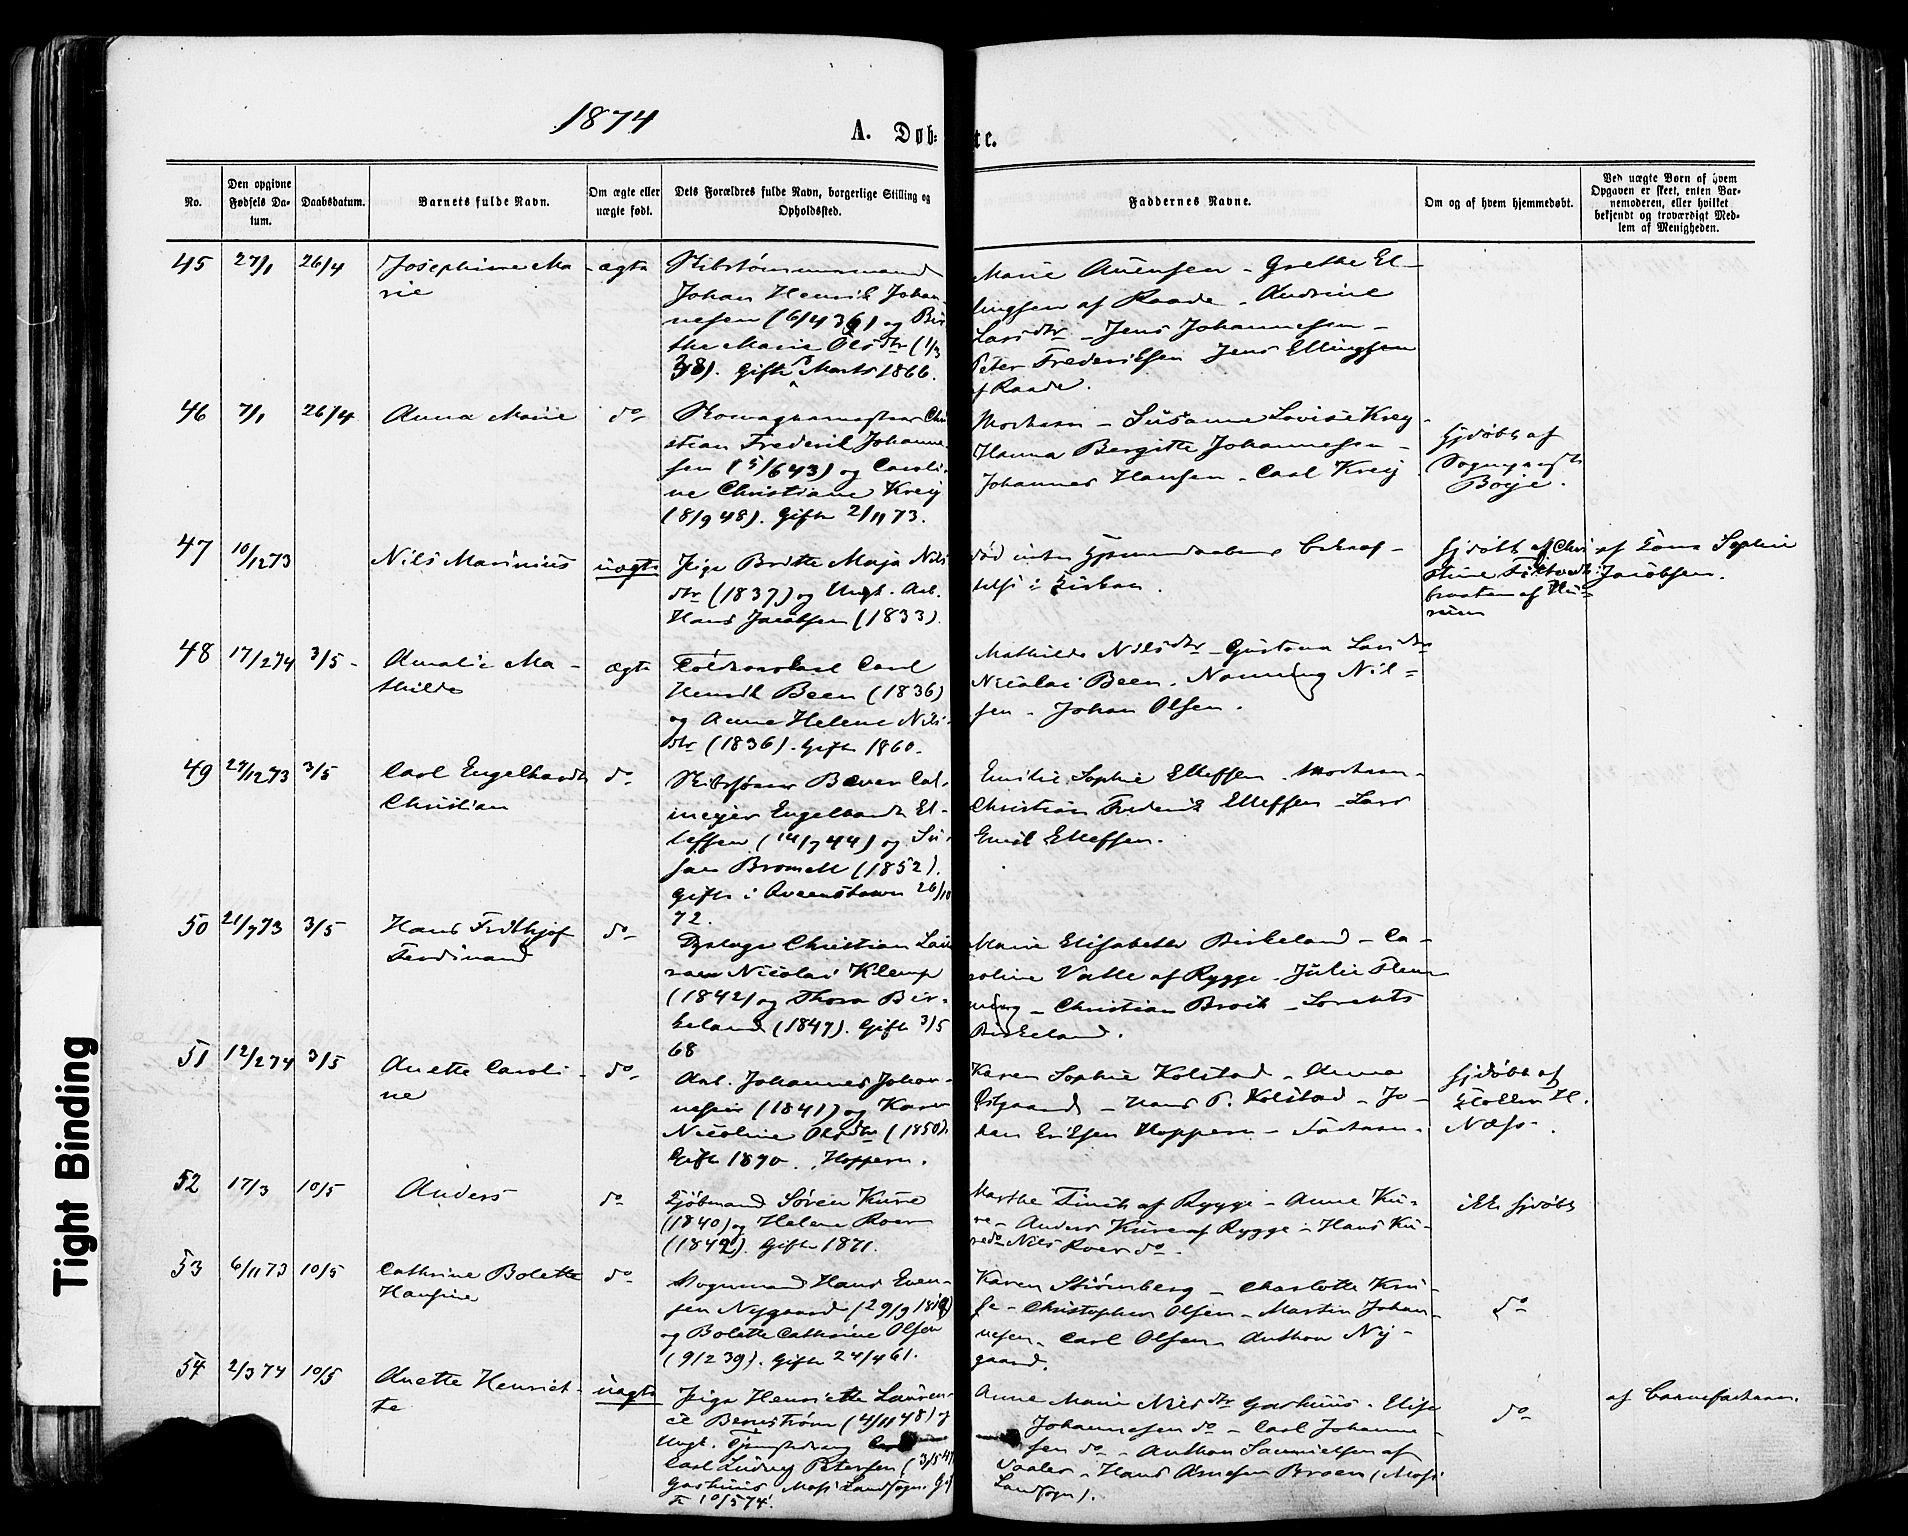 1874
A. Døb-
te.
No.
Den opgivne Fødsels Da-tum.
Daabsdatum.
Barnets fulde Navn.
Om ægte eller uægte født.
Dets Forældres fulde Navn, borgerlige Stilling og Opholdssted.
Faddernes Navne.
Om og af hvem hjemmedøbt.
Ved uægte Børn af hvem Opgaven er skeet, enten Bar-nemoderen, eller hvilket bekjendt og troværdigt Med-lem af Menigheden.
45 27/1 26/4 Josephine Ma-
rie
ægte
Johan Henrik Johan-
nesen (6/4 36) og Bir-
the Marie Olsdtr (1/3
38). Gifte Marts 1866.
Marie Auensen - Grethe El-
lingsen af Raade - Andrine
Larsdtr - Jens Johannesen -
Peter Frederiksen Jens Ellingsen
af Raade.
46 7/1 26/4 Anna Marie do
Chri-
stian Frederik Johanne-
sen (5/6 43) og Caroli-
ne Christiane Krey
(8/9 48). Gifte 2/11 73.
Moderen - Susanne Lovise Krey
Hanna Bergitte Johannesen -
Johannes Hansen - Carl Krey
Hjdøbt af
Sognepræst
Boye.
47 10/12 73 Nils Marinius uægte
Pige Britte Maja Nils
dtr (1837) og Ungk. Arb.
Hans Jacobsen (1833).
død inden Hjemmedaabens bekræf-
telse i Kirken.
Hjdøbt af Chri
stine
af Tone Sophie
Jacobsen.
48 17/2 74 3/5 - Amalie Ma-
thilde
ægte
Carl
Henrik Been (1836)
og Anne Helene Nils-
dtr (1836). Gifte 1860.
Mathilde Nilsdtr - Gustava Larsdtr
Nicolai Been - Nanning Nil-
sen - Johan Olsen.
49 27/12 73 3/5 Carl Engelhardt
Christian
do
Skibsfører Bæver Cal-
meyer Engelhardt El-
lefsen (14/7 44) og Su-
san Bromell (1852).
Gifte i Queenstown 26/10
72.
Emilie Sophie Ellefsen - Moderen -
Christian Frederik Ellefsen - Lars
Emil Ellefsen.
50 21/7 73 3/5 Hans Fridthjof
Ferdinand
do
Dyrlæge Christian Lau
Nicolai Klemp
(1842) og Thora Bir-
keland (1847). Gift 3/5
68
Marie Elisabeth Birkeland - Ca-
roline Valle af Rygge - Julie Flem-
ming - Christian Broch - Lorents
Birkeland.
51 12/2 74 3/5 Anette Caroli-
ne
do
Arb. Johannes Johan-
nesen (1841) og Karen
Nicoline Olsdtr (1850).
Gift 1870. Hoppern.
Karen Sophie Kolstad - Anna
Østgaard - Hans P. Kolstad - Jo-
han Eriksen Hoppern - Faderen.
Hjdøbt af
H.
Næss.
52 17/3 10/5 Anders do
Kjøbmand Søren Kure
(1840) og Helene Roer
(1842). Gifte 1871.
Marthe Finch af Rygge - Anne Ku-
re - Anders Kure af Rygge - Hans Ku-
re do Nils Roer do -
ikke hjdøbt
53 6/11 73 10/5 Cathrine Bolette
Hansine
do
Vognmand Hans Even-
sen Nygaard (29/9 18
og Bolette Cathrine Olsen
(9/2 39). Gifte 24/4 61.
Karen Strømberg - Charlotte Kru-
se - Christopher Olsen - Martin Johan-
nesen - Carl Olsen - Anthon Ny-
gaard.
do
54 2/3 74 10/5 Anette Henriet-
te
uægte
Pige Henriette Lauren-
ce Bernstrøm (4/11 48) og
Ungk. Tjenestedreng
Carl Ludvig Petersen (3/5 47)
Gashuus Moss Landsogn.
10/5 74.
Anne Marie Nilsdtr Gashuus - Elise
Johannesen do - Carl Johanne-
sen do - Anthon Samuelsen af
Vaaler - Hans Arnesen Braaen (Moss
Landsogn).
do
af Barnefaderen.
Tight Binding